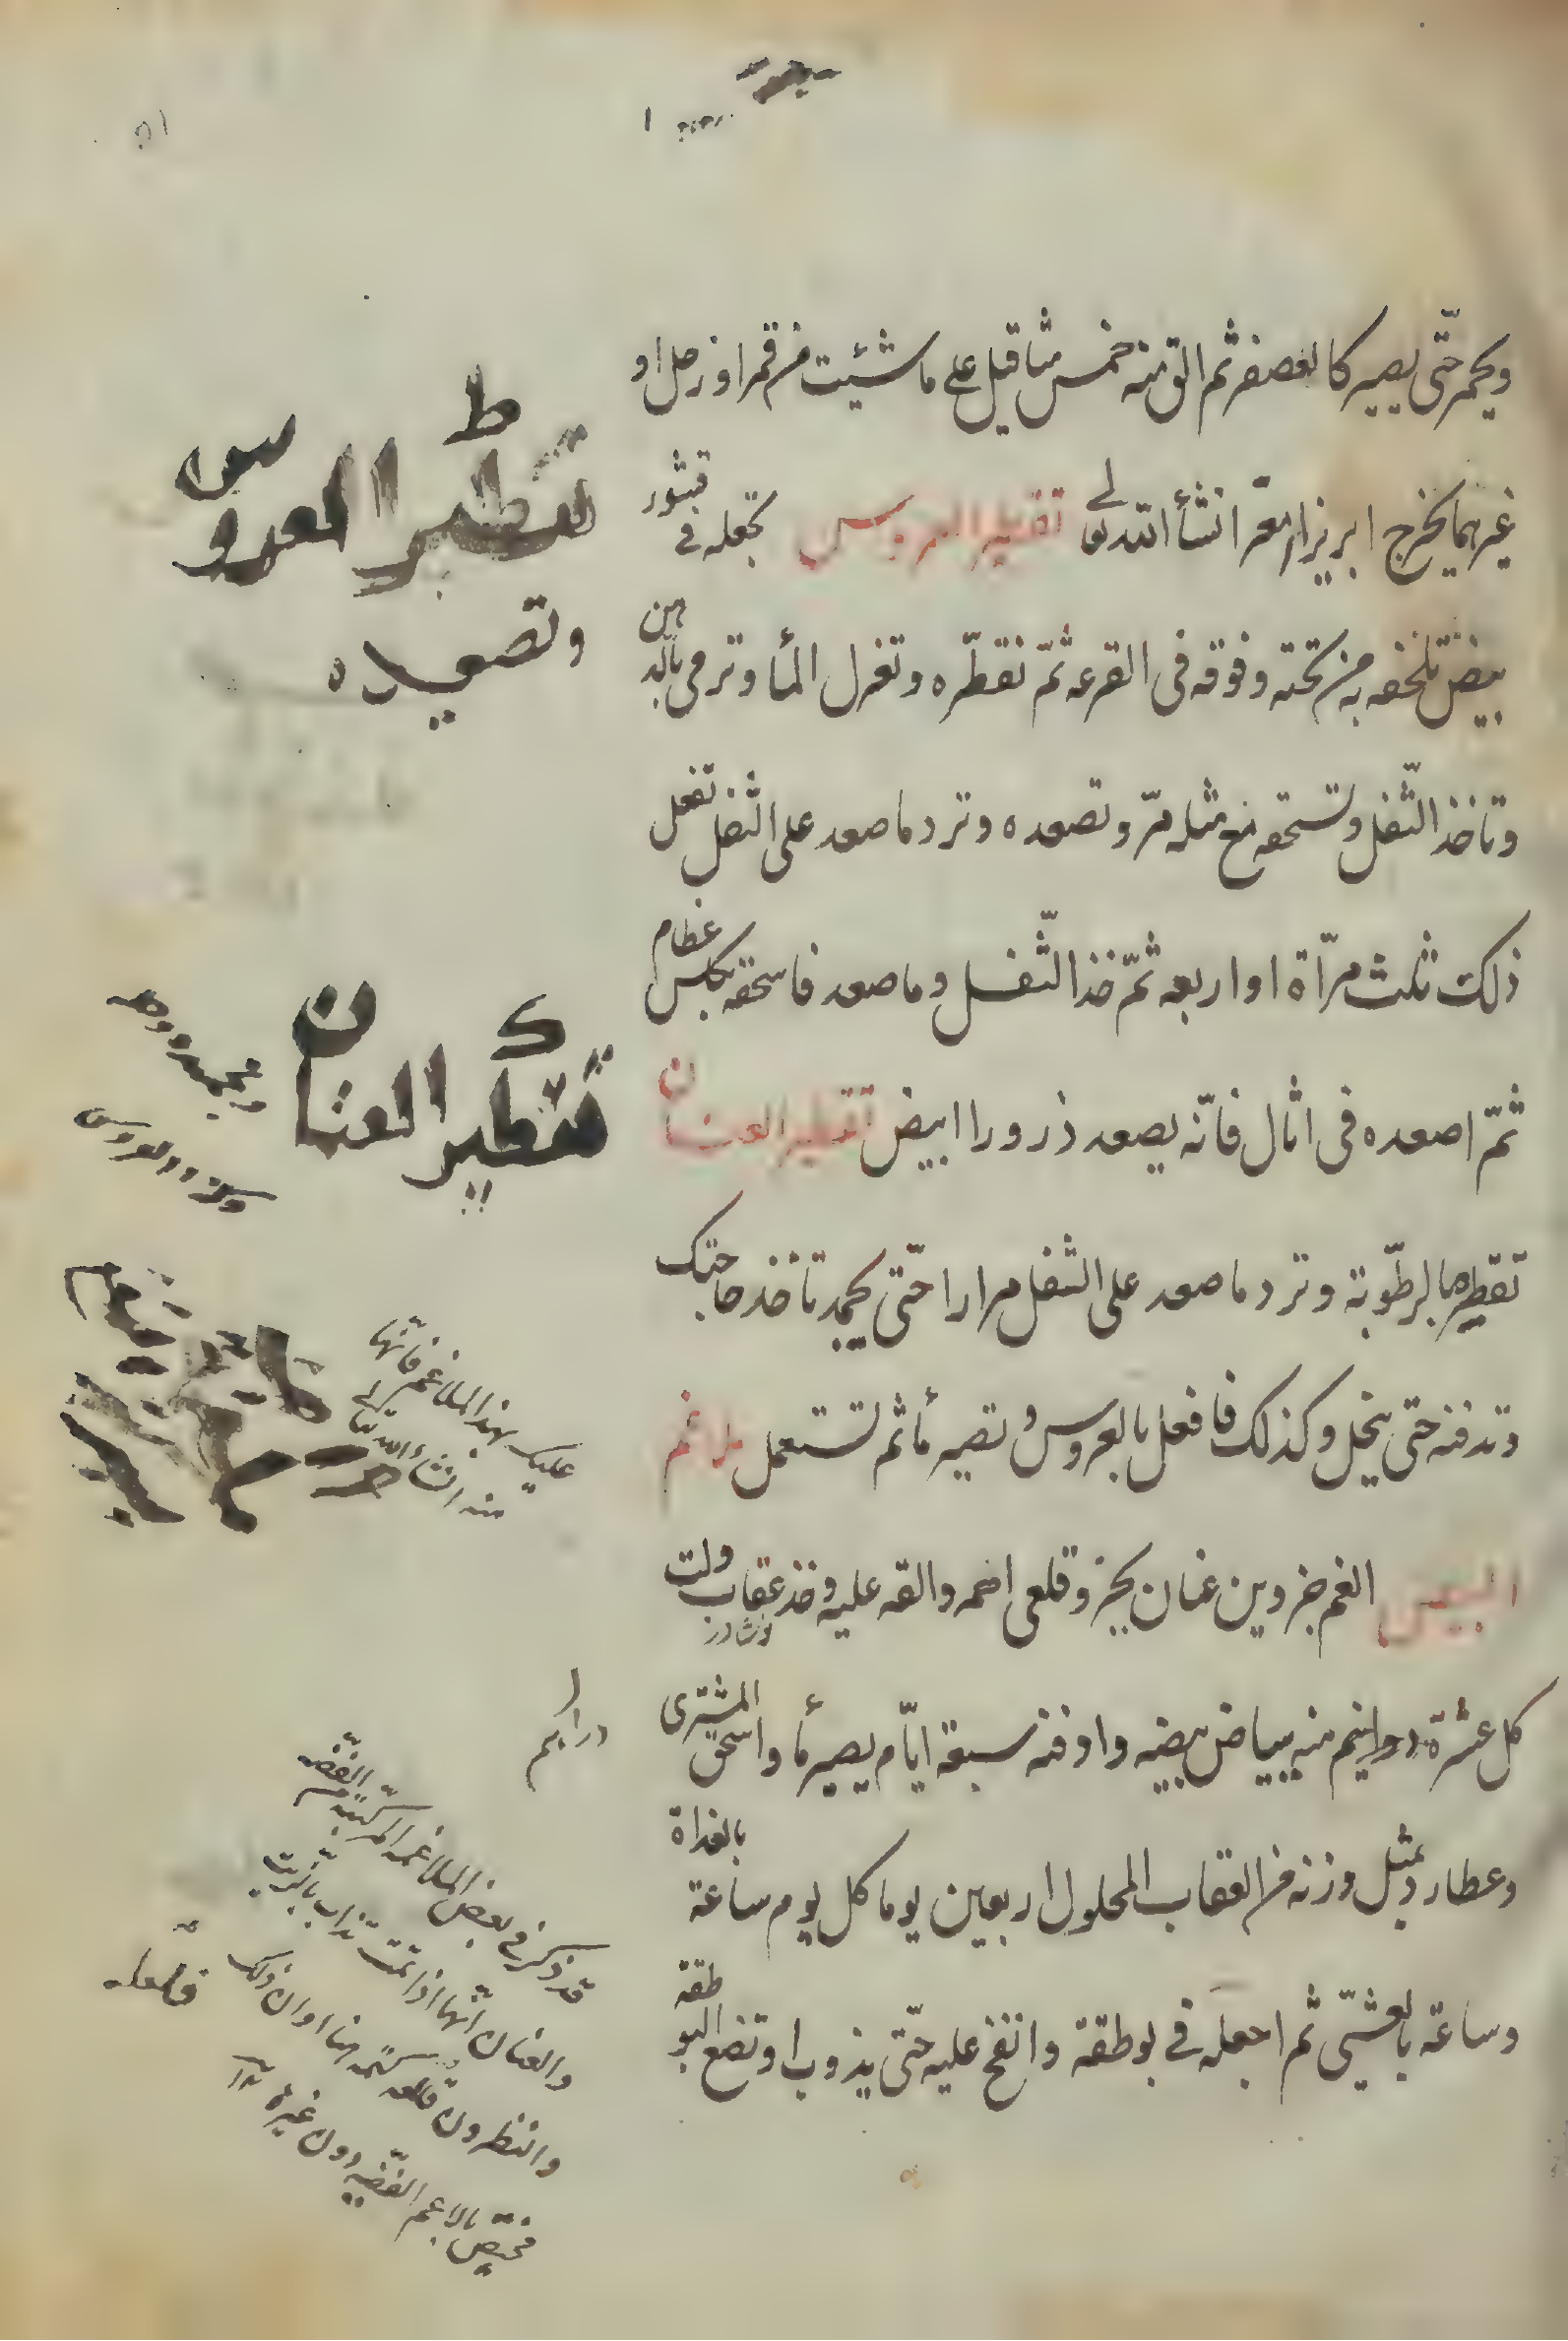 ٥١
ويحمر حتّى يصير كالعصفر ثم الق منه خمس مثاقيل على ما شئيت من قمر او زحل او
غيرهما يخرج ابريزا انشأ اللّه تعالى تقطير العروس تجعله في قشور
بيض تلحفه به من تحته وفوقه فى القرعه ثمّ تقطّره وتعزل المأ وترمى بالدهن
وتاخذ الثّفل وتسحقه مع مثله مرّ وتصعده وترد ما صعد على الثفل تفعل
ذلك ثلث مرّاة او اربعه ثمّ خذ الثّفل وما صعد فاسحقه بكلس عظام
ثمّ اصعده فى اثال فانّه يصعد ذرورا ابيض تقطير العنان
تقطيرهما لرطّوبة وترد ما صعد على الثفل مرارا حتّى يجمد تاخذ حاجتك
وتدفنه حتى ينحل وكذلك فافعل بالعروس وتصيره مأ ثم تستعمل ملاغم
البيض الغم جزوين عنان بجزو قلعى احمه والقه عليه وخذ عقاب ولت
نوشادر
كل عشرة دراهم منه ببياض بيضه وادفنه سبعة ايّام يصير مأ واسحق المشترى
وعطارد بمثل وزنه من العقاب المحلول اربعين يوما كل يوم ساعة بالغداة
وساعة بالعشيّ ثم اجعله في بوطقة وانفخ عليه حتّى يذوب او تضع البوطقة
تقطير العروس
وتصعيده
تقطير العنان
عليك بهذا الملاغم فانّها
منه انشأ اللّه تعالى
دراهم
قد ذكر في بعض الملاغمه المركّبة من الفضّه
والعنان انّها اذا تمت تذاب بالزّيت
والنطرون فلعلّه كتمه هنا او ان ذلك
مختص بالاغم الفضّيه دون غيره